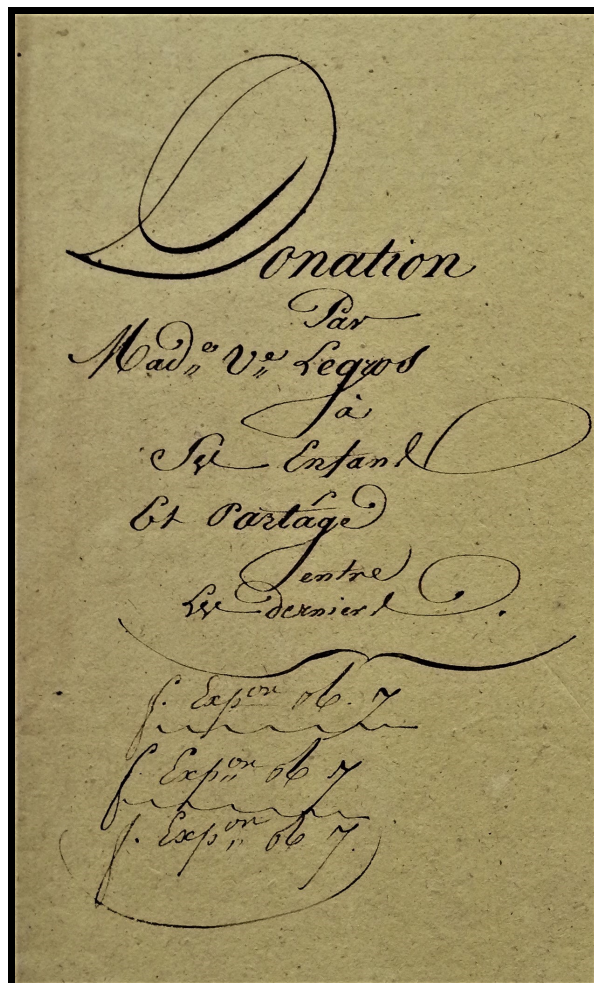 Donation
Par
Mad.e V.e Legros
à
Ses Enfans
Et Partage
entre
Les derniers.
f. Exp.on ob. 7
f. Exp.on ob 7
f. Exp.on ob 7.